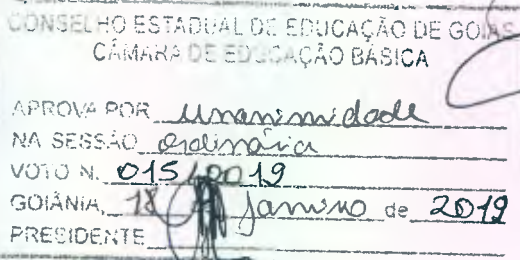 CONSELHO ESTADUAL DE EDUCAÇÃO DE GOIÁS
CÂMARA DE EDUCAÇÃO BÁSICA
APROVA POR unanimidade
NA SESSÃO ordinária
VOTO N. 015
GOIÂNIA, 18 janeiro de 2019
PRESIDENTE